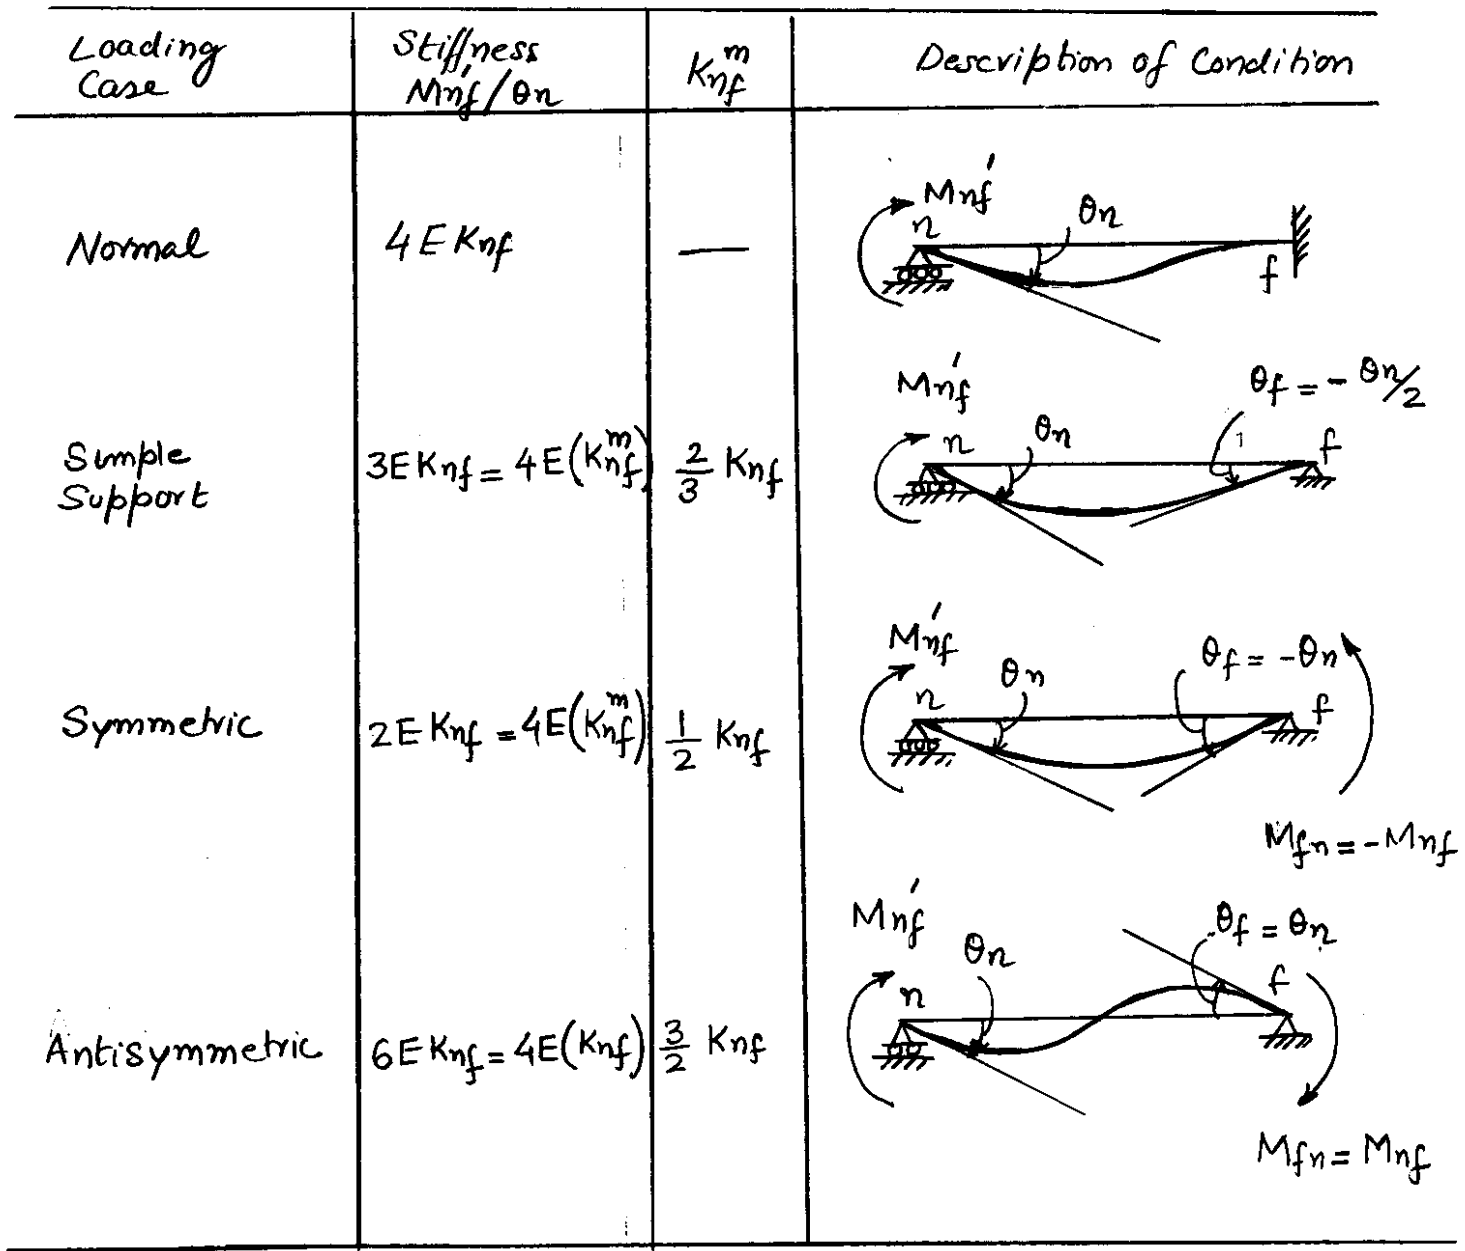 Loading Case
Stiffness M'nf/θn
K^m_nf
Description of Condition
Normal
4EKnf
—
M'nf
n
θn
f
Simple Support
3EKnf = 4E(K^m_nf)
2/3 Knf
M'nf
n
θn
θf = - θn/2
f
Symmetric
2EKnf = 4E(K^m_nf)
1/2 Knf
M'nf
n
θn
θf = -θn
f
Mfn = -Mnf
Antisymmetric
6EKnf = 4E(Knf)
3/2 Knf
M'nf
n
θn
θf = θn
f
Mfn = Mnf